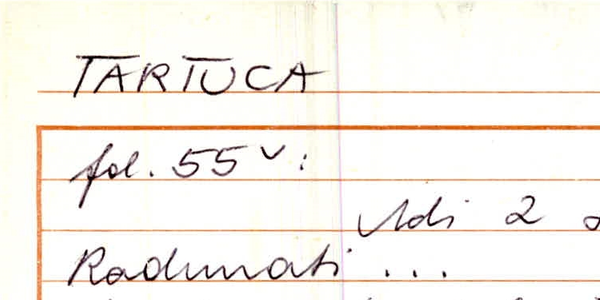 TARTUCA
fol. 55v:
Adi 2
Radunati ...